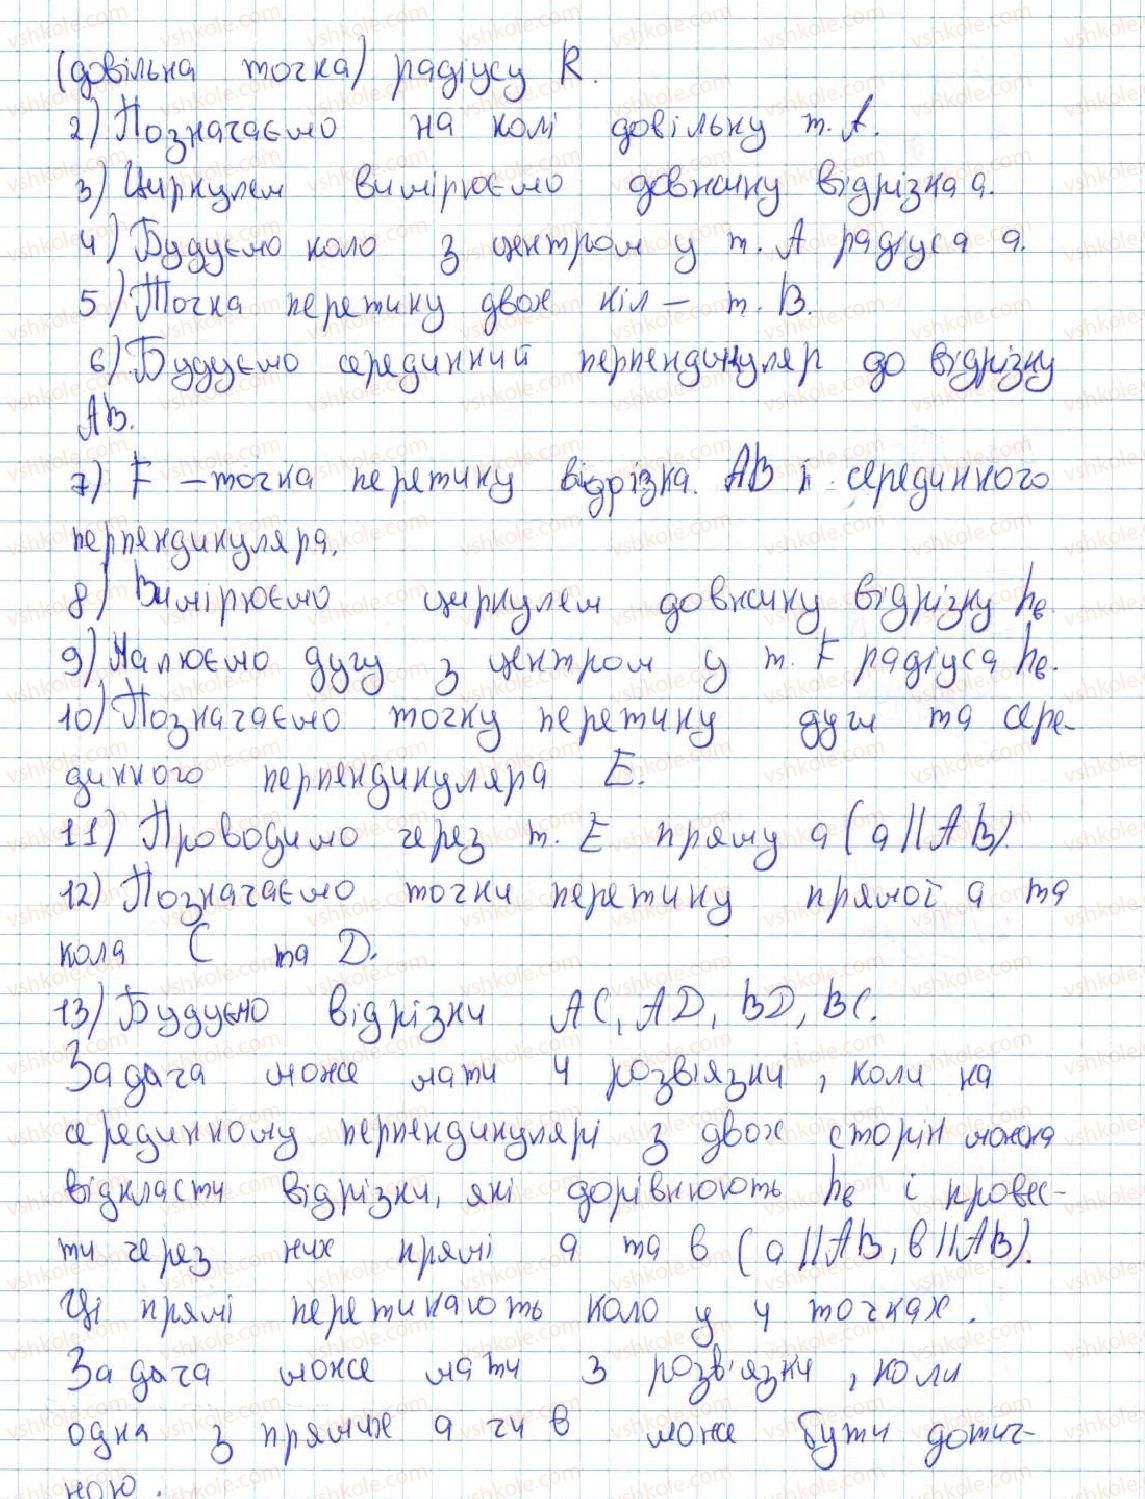 (довільна точка) радіусу R.
2) Позначаємо на колі довільну т. A.
3) Циркулем вимірюємо довжину відрізка a.
4) Будуємо коло з центром у т. A радіуса a.
5) Точка перетину двох кіл – т. B.
6) Будуємо серединний перпендикуляр до відрізку
AB.
7) F – точка перетину відрізка AB і серединного
перпендикуляра.
8) Вимірюємо циркулем довжину відрізку hв.
9) Малюємо дугу з центром у т. F радіуса hв.
10) Позначаємо точку перетину дуги та сере-
динного перпендикуляра E.
11) Проводимо через т. E пряму a (a || AB).
12) Позначаємо точки перетину прямої a та
кола C та D.
13) Будуємо відрізки AC, AD, BD, BC.
Задача може мати 4 розв'язки, коли на
серединному перпендикулярі з двох сторін можна
відкласти відрізки, які дорівнюють hв і провес-
ти через них прямі a та в (a || AB, в || AB).
Ці прямі перетинають коло у 4 точках.
Задача може мати 3 розв'язки, коли
одна з прямих a чи в може бути дотич-
ною.